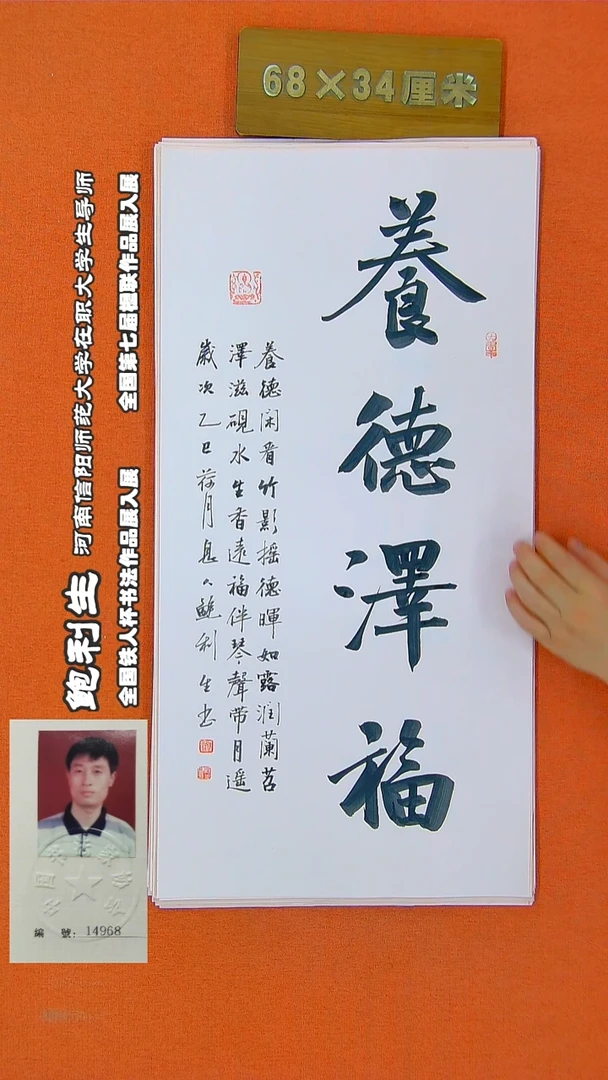 68×34厘米
養德澤福
養德闲看竹影摇德暉如露润蘭苕
澤滋硯水生香遠福伴琴聲带月遥
歲次乙巳荷月息人鲍利生书
鲍利生 河南信阳师范大学在职大学生导师
全国铁人杯书法作品展入展 全国第七届楹联作品展入展
編 號：14968